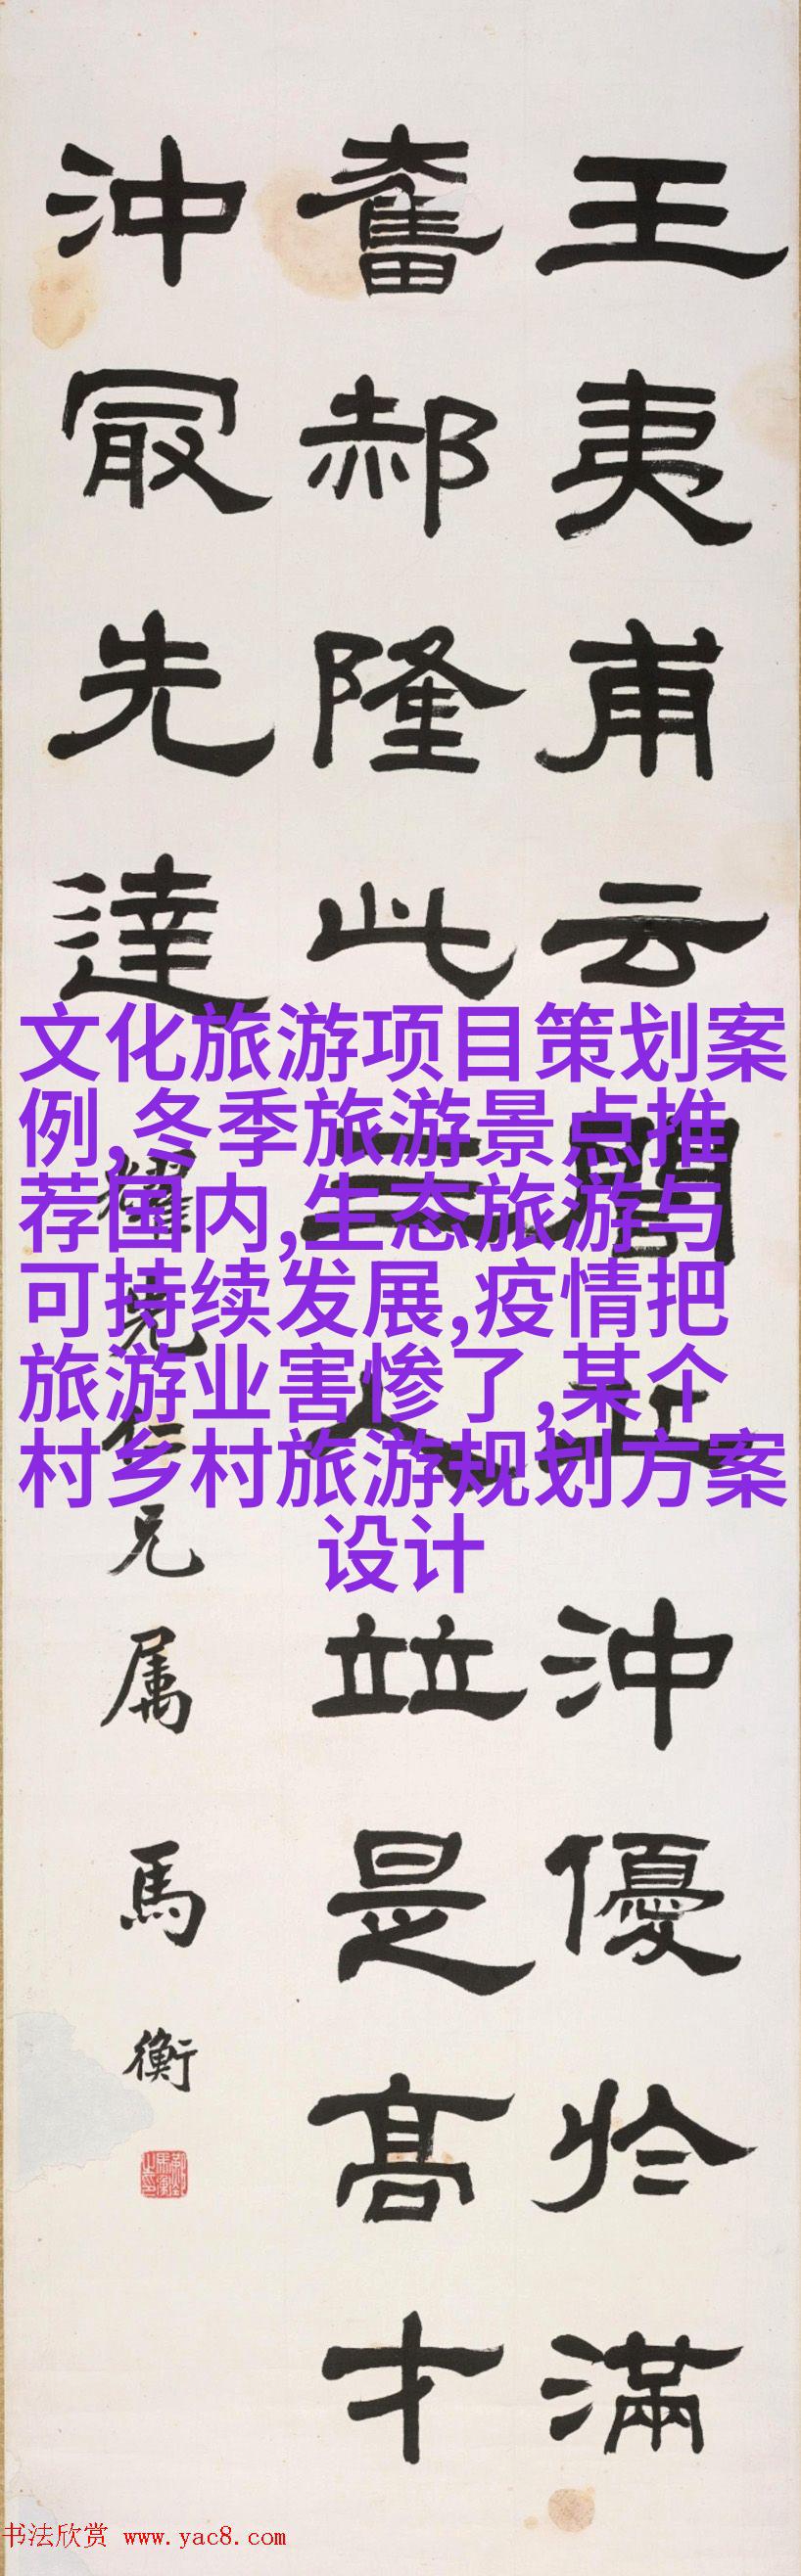 王夷甫云閭丘沖優於滿
奮郝隆此三人竝是高才
沖冣先達
仁兄属
馬衡
文化旅游项目策划案
例,冬季旅游景点推
荐国内,生态旅游与
可持续发展,疫情把
旅游业害惨了,某个
村乡村旅游规划方案
设计
书法欣赏 www.yac8.com